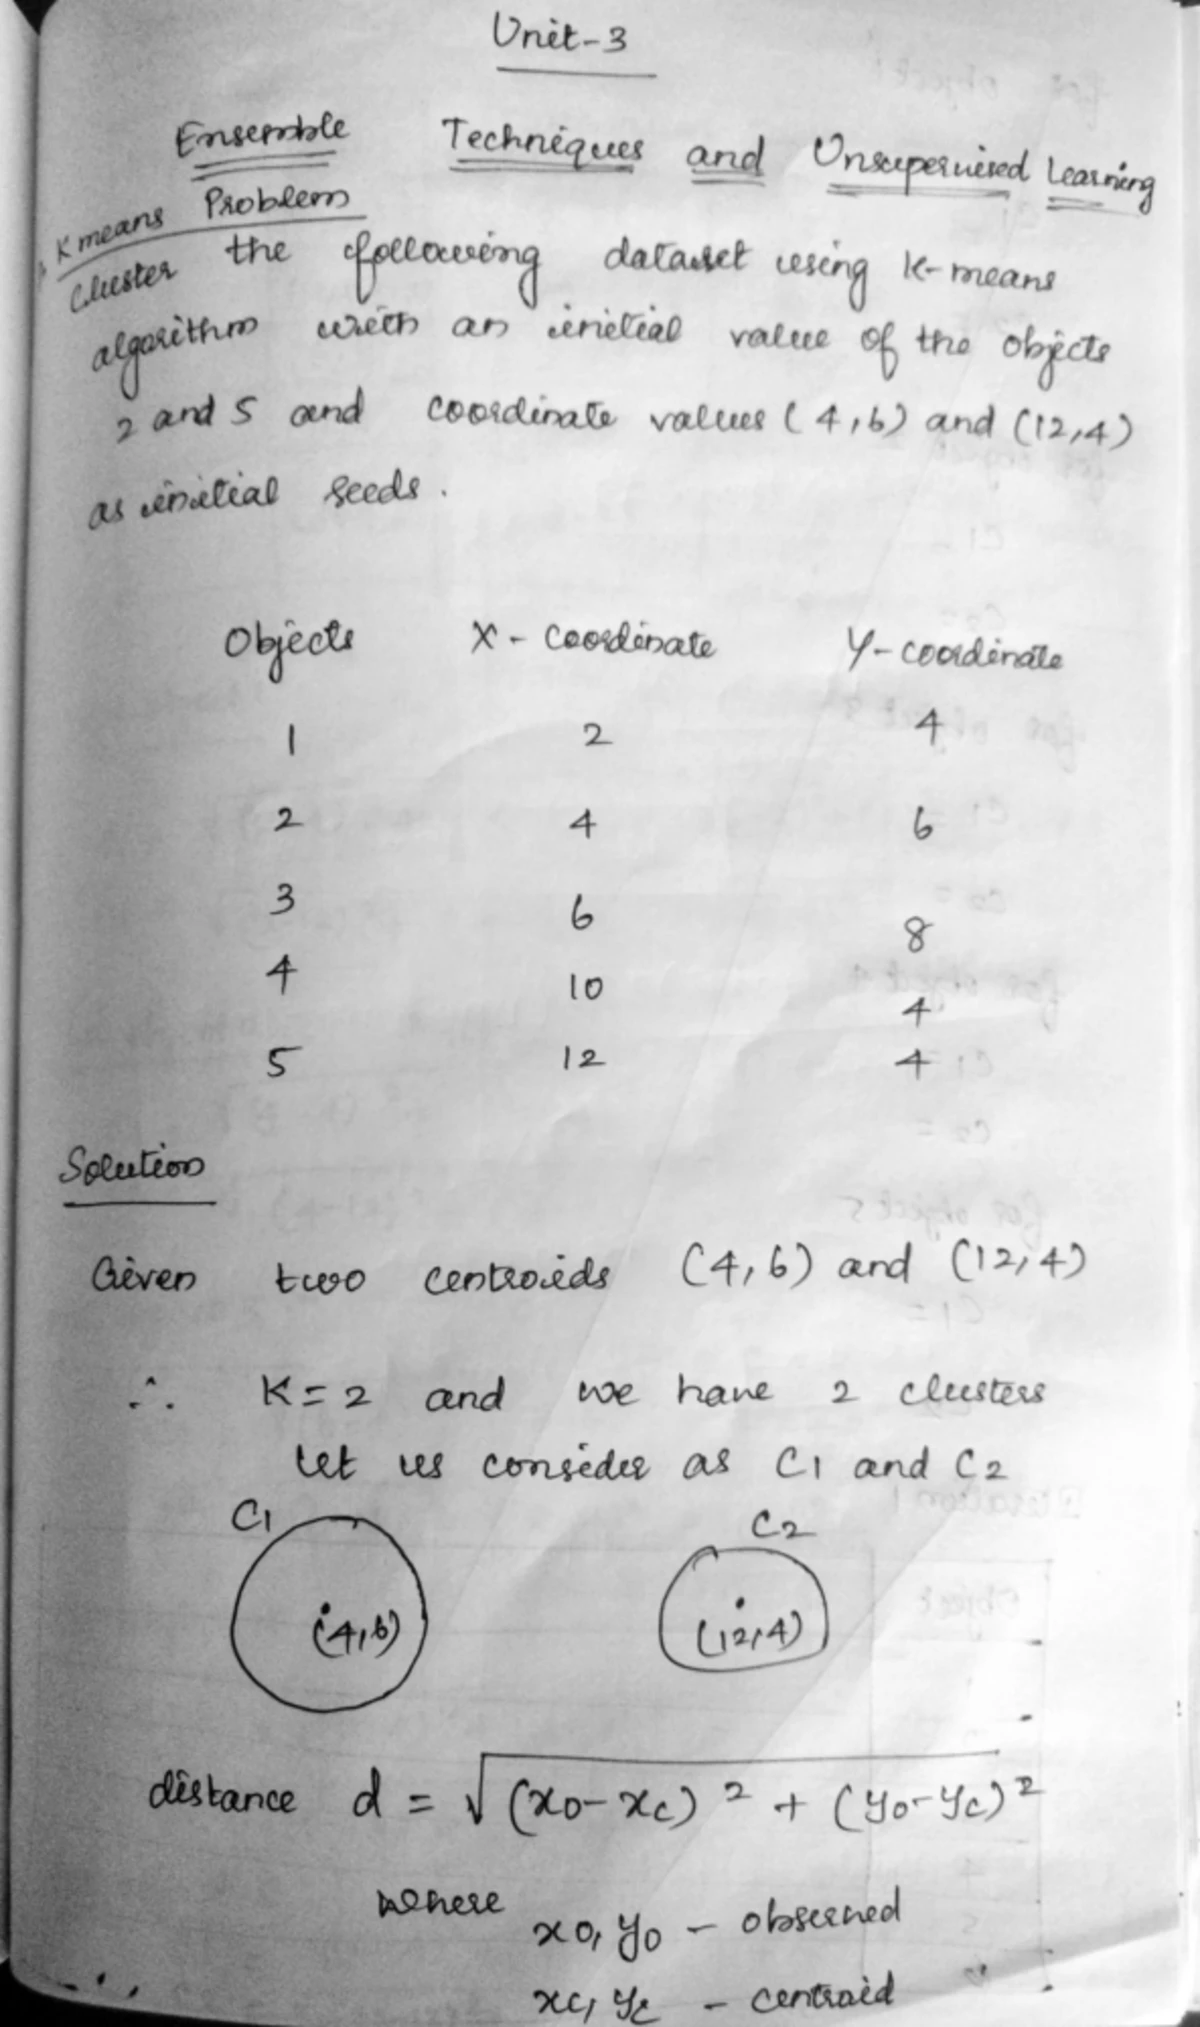 Unit-3
Ensemble Techniques and Unsupervised Learning
K means Problem
Cluster the following dataset using K-means
algorithm with an initial value of the objects
2 and 5 and coordinate values (4,6) and (12,4)
as initial seeds.
Objects X-coordinate Y-coordinate
1 2 4
2 4 6
3 6 8
4 10 4
5 12 4
Solution
Given two centroids (4,6) and (12,4)
∴ K=2 and we have 2 clusters
Let us consider as C1 and C2
C1 C2
(4,6) (12,4)
distance d = √(x0-xc)² + (y0-yc)²
where
x0, y0 - observed
xc, yc - centroid